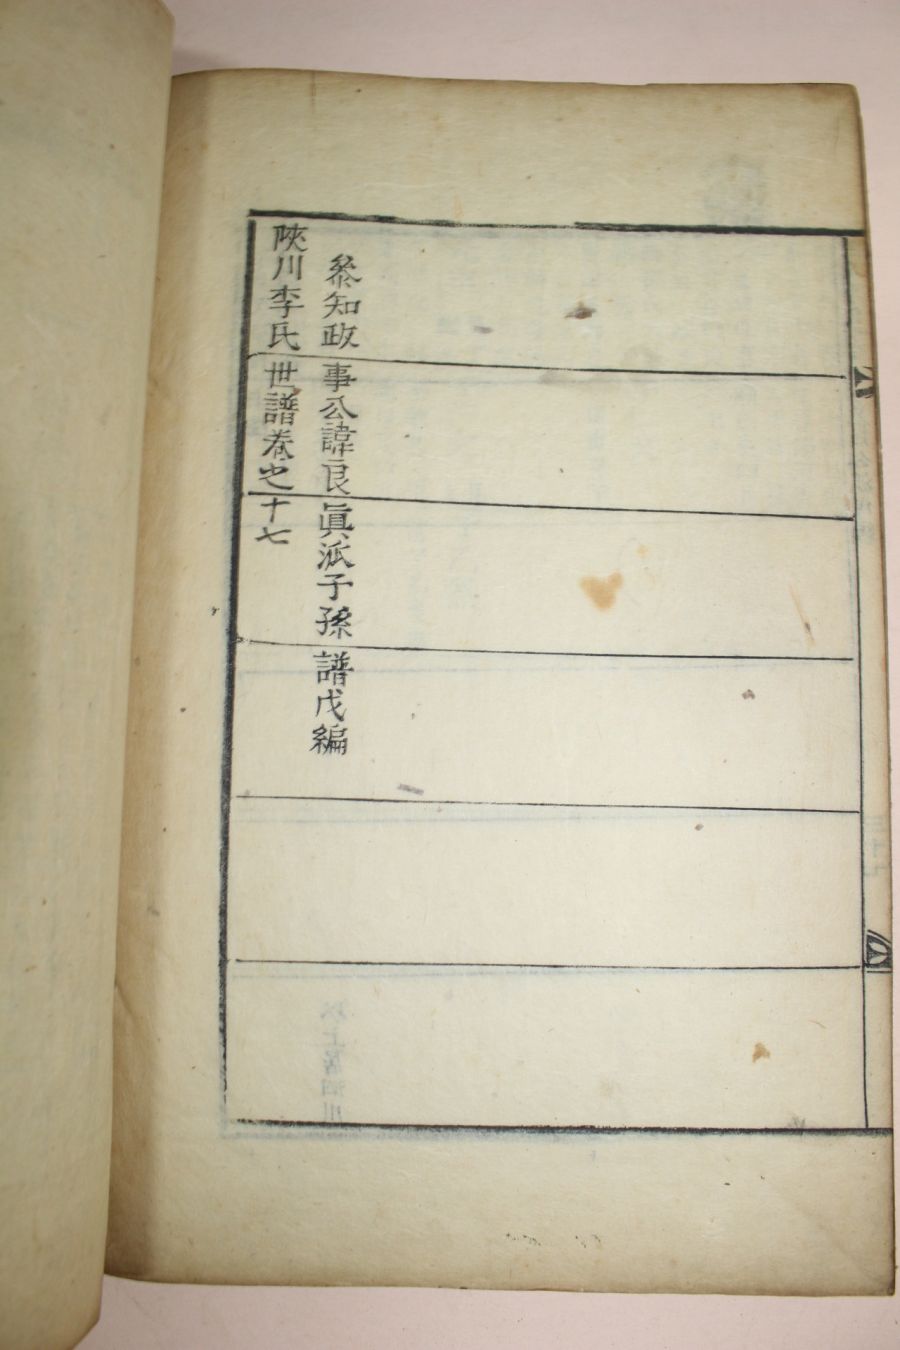 叅知政事公諱良眞派子孫譜戊編
陜川李氏世譜卷之十七